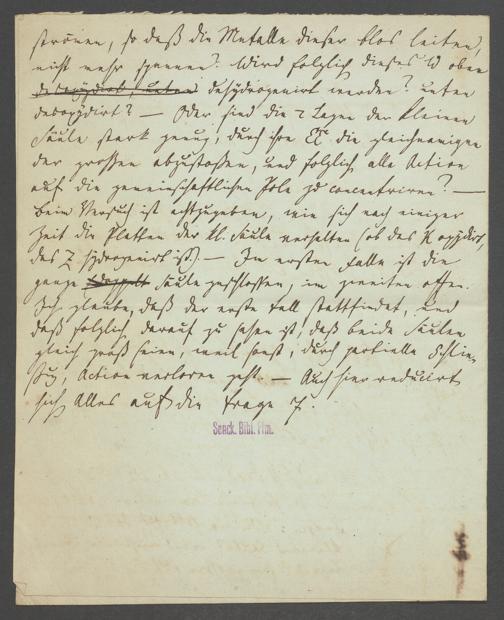 strömen, so daß die Metalle dieser blos leiten,
nicht mehr spannen? Wird folglich dieses W oben
desoxydirt, unten deshydrogenirt werden? unten
desoxydirt? — Oder sind die 2 Lagen der kleinen
Säule stark genug, durch ihre die gleichnamigen
der großen abzustoßen, und folglich alle Action
auf die gemeinschaftlichen Pole zu concentriren? —
Beim Versuch ist achtzugeben, wie sich nach einiger
Zeit die Platten der kl. Säule verhalten (ob das K oxydirt,
das Z hydrogenirt ist). — Im ersten Falle ist die
ganze Säule geschlossen, im zweiten offen.
Ich glaube, daß der erste Fall stattfindet, und
daß folglich darauf zu sehen ist, daß beide Säulen
gleich groß seien, weil sonst, durch partielle Schlie-
ßung, Action verloren geht. — Auch hier reducirt
sich Alles auf die Frage 7.
Senck. Bibl. Ffm.